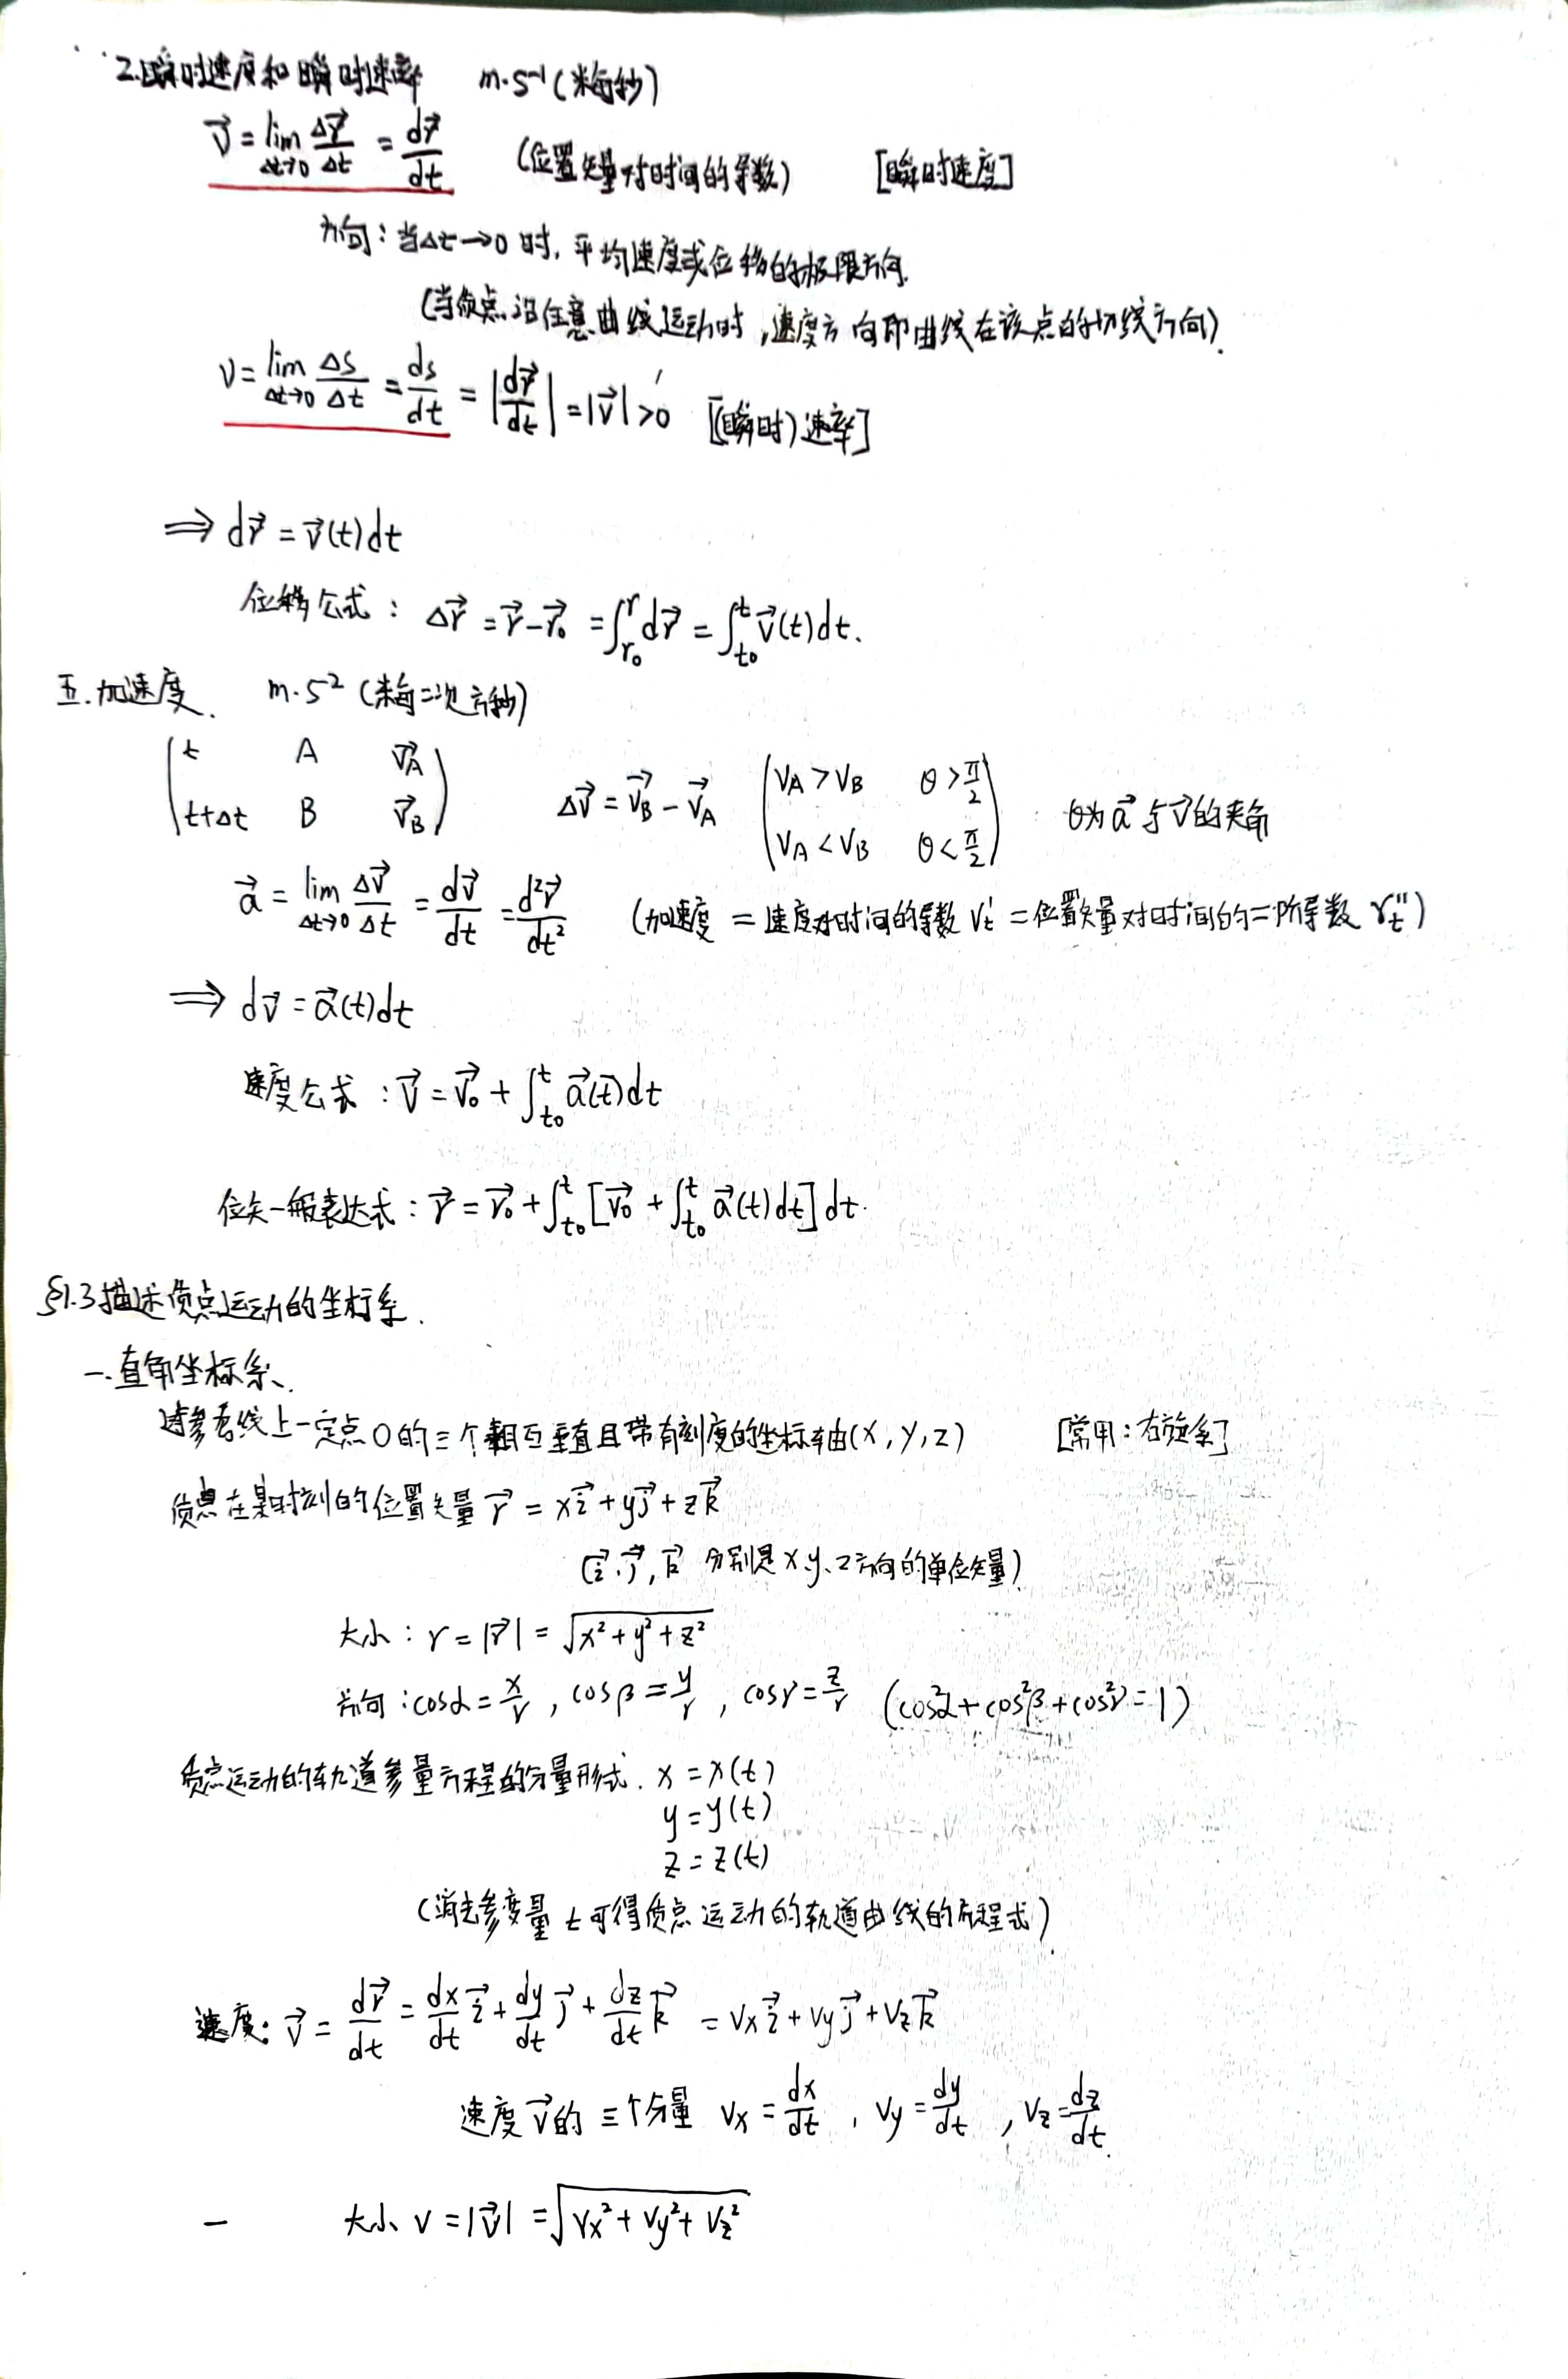 2.瞬时速度和瞬时速率 m·s⁻¹(米每秒)
v⃗ = lim(Δt→0) Δr⃗/Δt = dr⃗/dt (位置矢量对时间的导数) [瞬时速度]
方向：当Δt→0时，平均速度或位移的极限方向.
(当质点沿任意曲线运动时，速度方向即曲线在该点的切线方向).
v = lim(Δt→0) Δs/Δt = ds/dt = |dr⃗/dt| = |v⃗| >0 [(瞬时)速率]
⇒ dr⃗ = v⃗(t)dt
位移公式：Δr⃗ = r⃗ - r⃗₀ = ∫_{r₀}^{r} dr⃗ = ∫_{t₀}^{t} v⃗(t)dt.
五.加速度. m·s² (米每二次方秒)
t A v⃗_A
t+Δt B v⃗_B Δv⃗ = v⃗_B - v⃗_A
v_A > v_B θ > π/2
v_A < v_B θ < π/2 θ为a⃗与v⃗的夹角
a⃗ = lim(Δt→0) Δv⃗/Δt = dv⃗/dt = d²r⃗/dt² (加速度 = 速度对时间的导数 v_t' = 位置矢量对时间的二阶导数 r_t'')
⇒ dv⃗ = a⃗(t)dt
速度公式：v⃗ = v⃗₀ + ∫_{t₀}^{t} a⃗(t)dt
位矢一般表达式：r⃗ = r⃗₀ + ∫_{t₀}^{t} [v⃗₀ + ∫_{t₀}^{t} a⃗(t)dt] dt.
§1.3描述质点运动的坐标系.
一.直角坐标系.
过参考线上一定点O的三个相互垂直且带有刻度的坐标轴(x,y,z) [常用：右旋系]
质点在某时刻的位置矢量 r⃗ = xi⃗ + yj⃗ + zk⃗
(i⃗.j⃗,k⃗ 分别是x.y.z方向的单位矢量)
大小：r = |r⃗| = √(x²+y²+z²)
方向：cosα = x/r , cosβ = y/r , cosγ = z/r (cos²α+cos²β+cos²γ=1)
质点运动的轨道参量方程的分量形式. x = x(t)
y = y(t)
z = z(t)
(消去参变量t可得质点运动的轨道曲线的方程式)
速度：v⃗ = dr⃗/dt = dx/dt i⃗ + dy/dt j⃗ + dz/dt k⃗ = v_x i⃗ + v_y j⃗ + v_z k⃗
速度v⃗的三个分量 v_x = dx/dt , v_y = dy/dt , v_z = dz/dt.
— 大小 v = |v⃗| = √(v_x²+v_y²+v_z²)